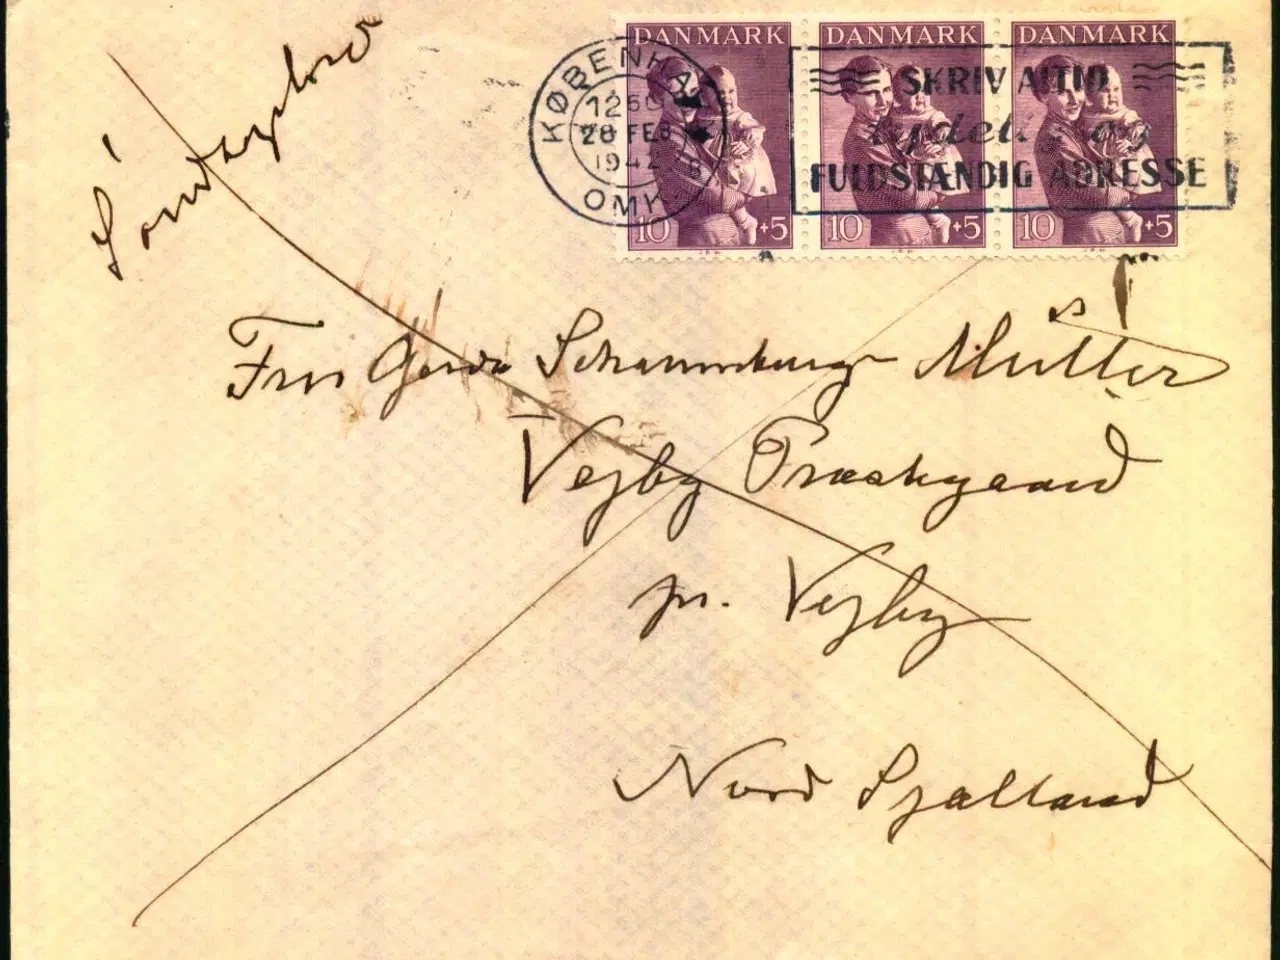 DANMARK DANMARK DANMARK
10 +5 10 +5 10 +5
KØBENHA
1250
28 FEB
1942
OMK.
SKRIV ALTID
tydelig og
FULDSTÆNDIG ADRESSE
Søndagsbrev
Fru Gerda Schaumburg Müller
Vejby Præstegaard
pr. Vejby
Nord Sjælland